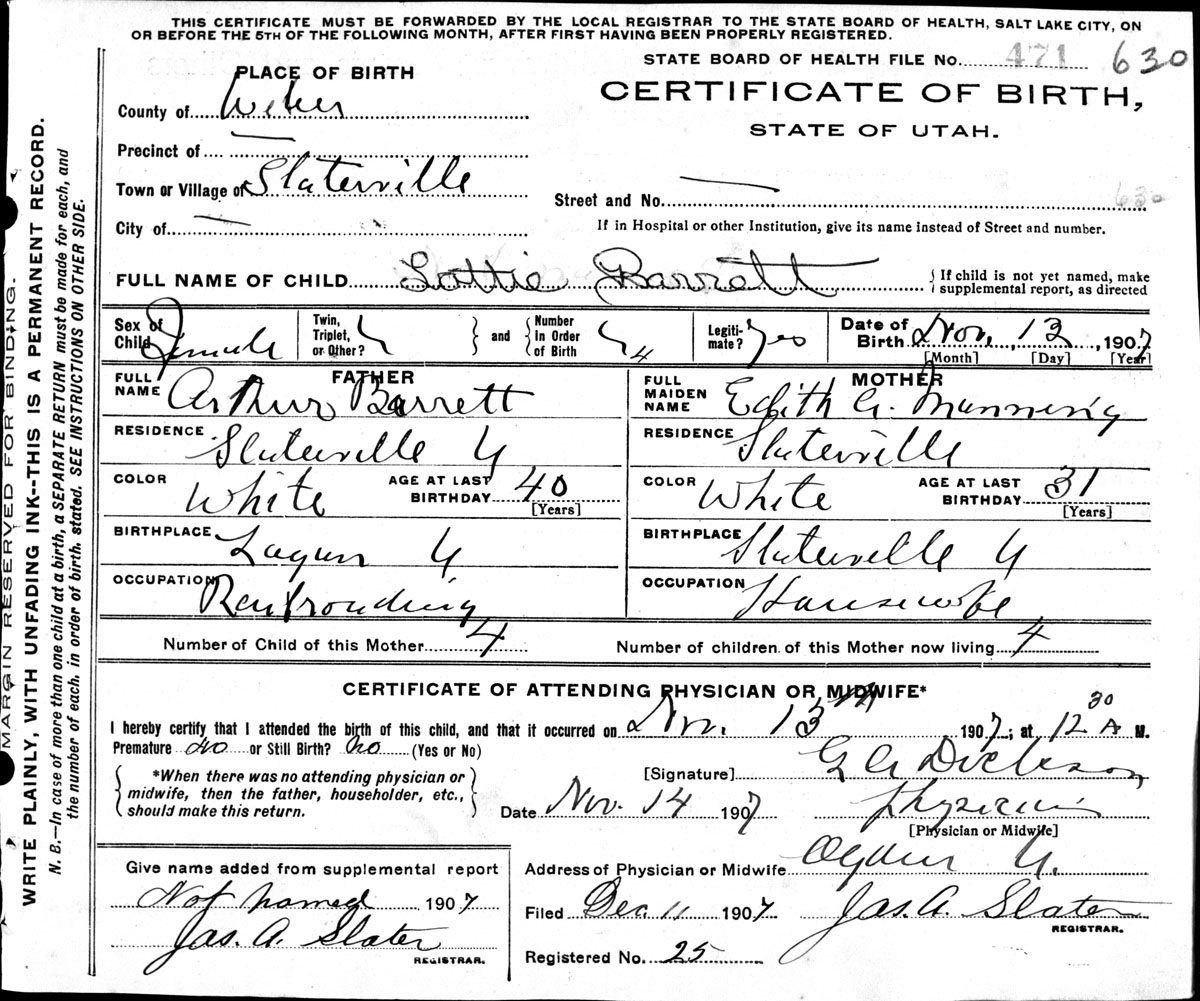 THIS CERTIFICATE MUST BE FORWARDED BY THE LOCAL REGISTRAR TO THE STATE BOARD OF HEALTH, SALT LAKE CITY, ON
OR BEFORE THE 5TH OF THE FOLLOWING MONTH, AFTER FIRST HAVING BEEN PROPERLY REGISTERED.
STATE BOARD OF HEALTH FILE No. 471 630
PLACE OF BIRTH
CERTIFICATE OF BIRTH,
STATE OF UTAH.
County of Weber
Precinct of —
Town or Village of Slaterville
Street and No. — 630
City of —
If in Hospital or other Institution, give its name instead of Street and number.
FULL NAME OF CHILD Lottie Barrett
{ If child is not yet named, make
supplemental report, as directed
Sex of Child Female
Twin, Triplet, or Other?
} and {
Number In Order of Birth 4
Legiti- mate? yes
Date of Birth Nov. 13, 1907
[Month] [Day] [Year]
FATHER
FULL NAME Arthur Barrett
RESIDENCE Slaterville U
COLOR White
AGE AT LAST BIRTHDAY 40
[Years]
BIRTHPLACE U
OCCUPATION
MOTHER
FULL MAIDEN NAME Edith A. Manning
RESIDENCE Slaterville
COLOR White
AGE AT LAST BIRTHDAY 31
[Years]
BIRTHPLACE Slaterville U
OCCUPATION Housewife
Number of Child of this Mother 4
Number of children of this Mother now living 4
CERTIFICATE OF ATTENDING PHYSICIAN OR MIDWIFE*
I hereby certify that I attended the birth of this child, and that it occurred on Nov. 13th 1907; at 12 30 A M.
Premature no or Still Birth? no (Yes or No)
{ *When there was no attending physician or
midwife, then the father, householder, etc.,
should make this return. }
[Signature] Dickson
Date Nov. 14 1907 Physician
[Physician or Midwife]
Give name added from supplemental report
Not named 1907
Jas. A. Slater
REGISTRAR.
Address of Physician or Midwife Ogden U.
Filed Dec 11 1907 Jas. A. Slater
REGISTRAR.
Registered No. 25
MARGIN RESERVED FOR BINDING.
WRITE PLAINLY, WITH UNFADING INK--THIS IS A PERMANENT RECORD.
N. B.—In case of more than one child at a birth, a SEPARATE RETURN must be made for each, and
the number of each, in order of birth, stated. SEE INSTRUCTIONS ON OTHER SIDE.